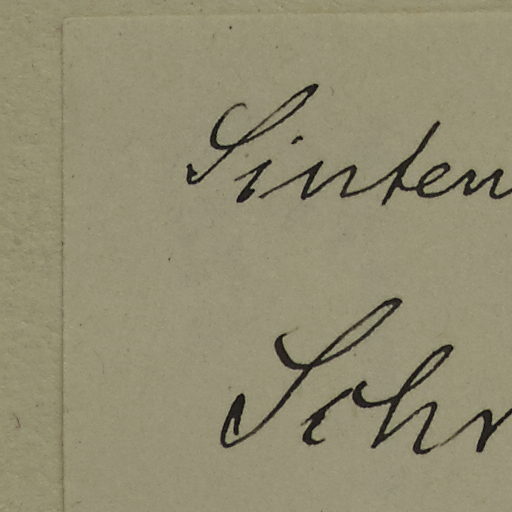 Sinten
Schr